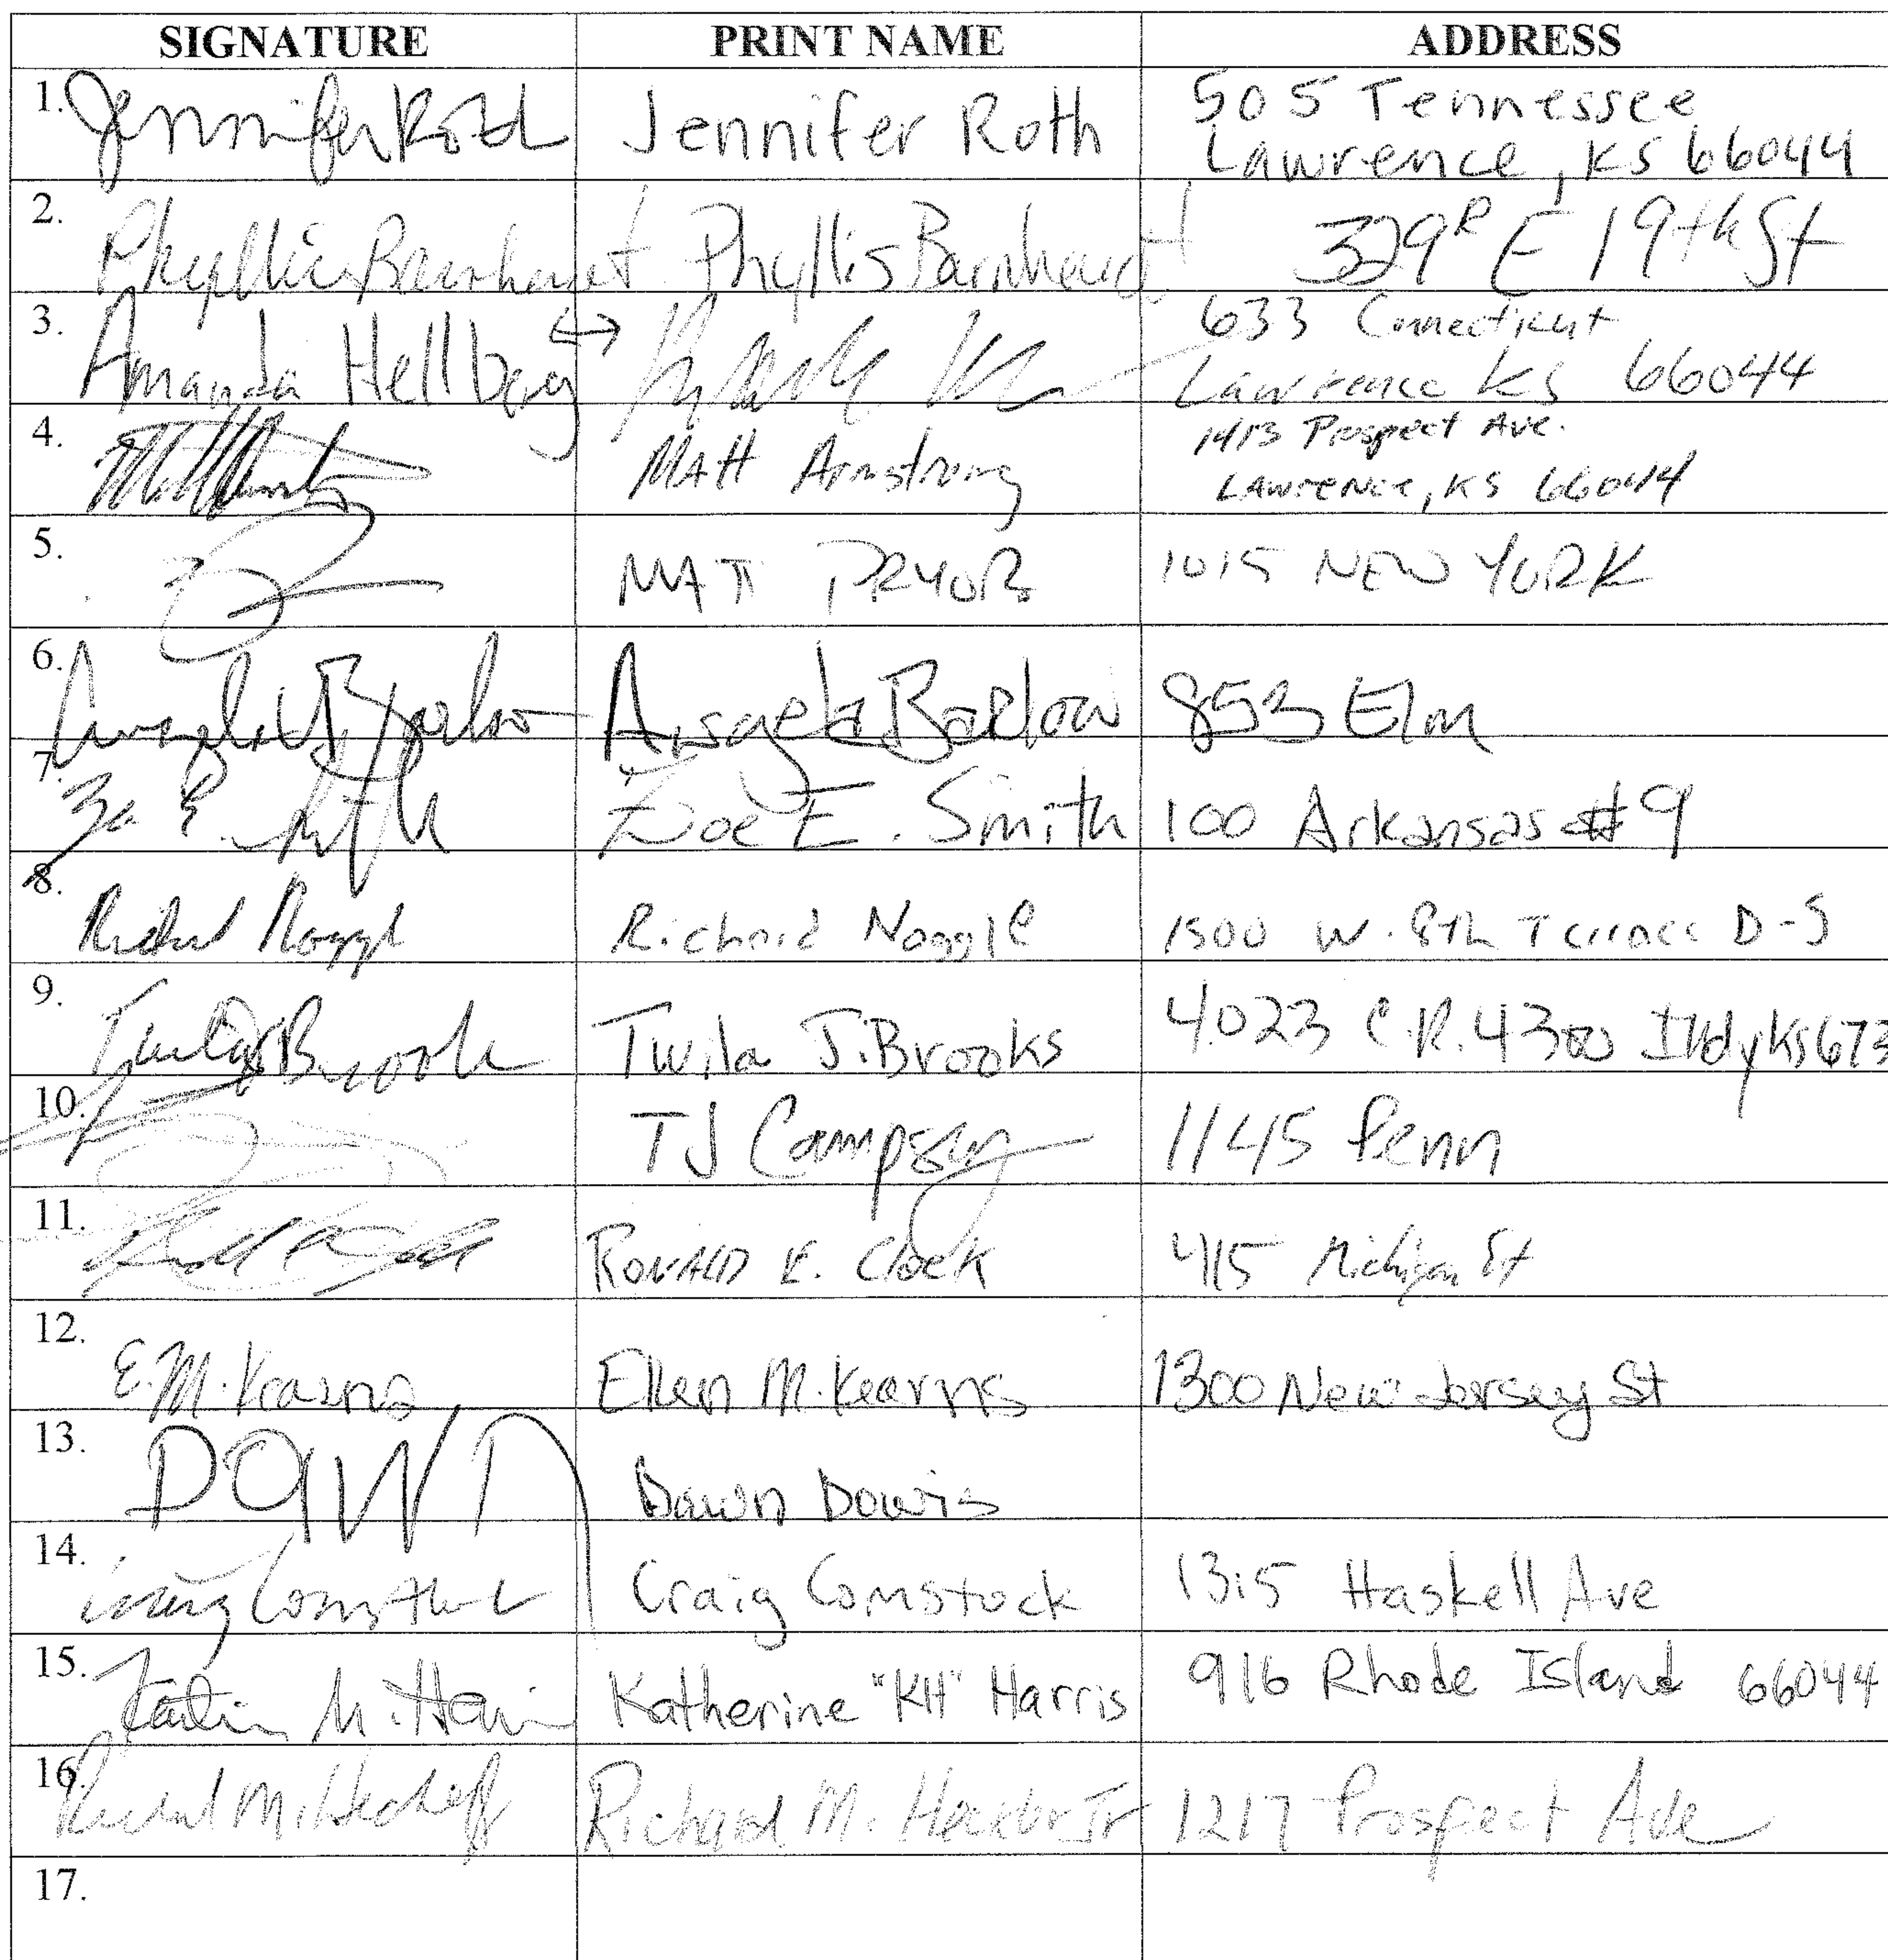 SIGNATURE PRINT NAME ADDRESS
1. Jennifer Roth Jennifer Roth 505 Tennessee
Lawrence, KS 66044
2. Phyllis Barnheart Phyllis Barnheart 329R E 19th St
3. Amanda Hellberg ↔ 633 Connecticut
Lawrence KS 66044
4. Matt Armstrong 1413 Prospect Ave.
Lawrence, KS 66044
5. MATT PRYOR 1015 NEW YORK
6. Angela Barlow Angela Barlow 853 Elm
7. Zoe E. Smith 100 Arkansas #9
8. Richard Noggle Richard Noggle 1500 W. 8th Terrace D-5
9. Twila J Brooks Twila J. Brooks 4023 C.R. 4300 Indy Ks 673
10. TJ Campsey 1145 Penn
11. RONALD E. Clock 415 Michigan St
12. E.M. Kearns Ellen M. Kearns 1300 New Jersey St
13. Dawn Dawn Dowis
14. Craig Comstock Craig Comstock 1315 Haskell Ave
15. Katherine "KH" Harris 916 Rhode Island 66044
16. Richard M. Jr 1217 Prospect Ave
17.